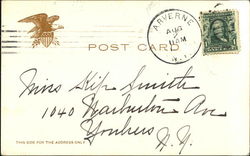 ARVERNE
AUG
2
11 AM
N.Y.
POST CARD
Miss Skip Smith
1040 Warburton Ave
Yonkers
N.Y.
THIS SIDE FOR THE ADDRESS ONLY